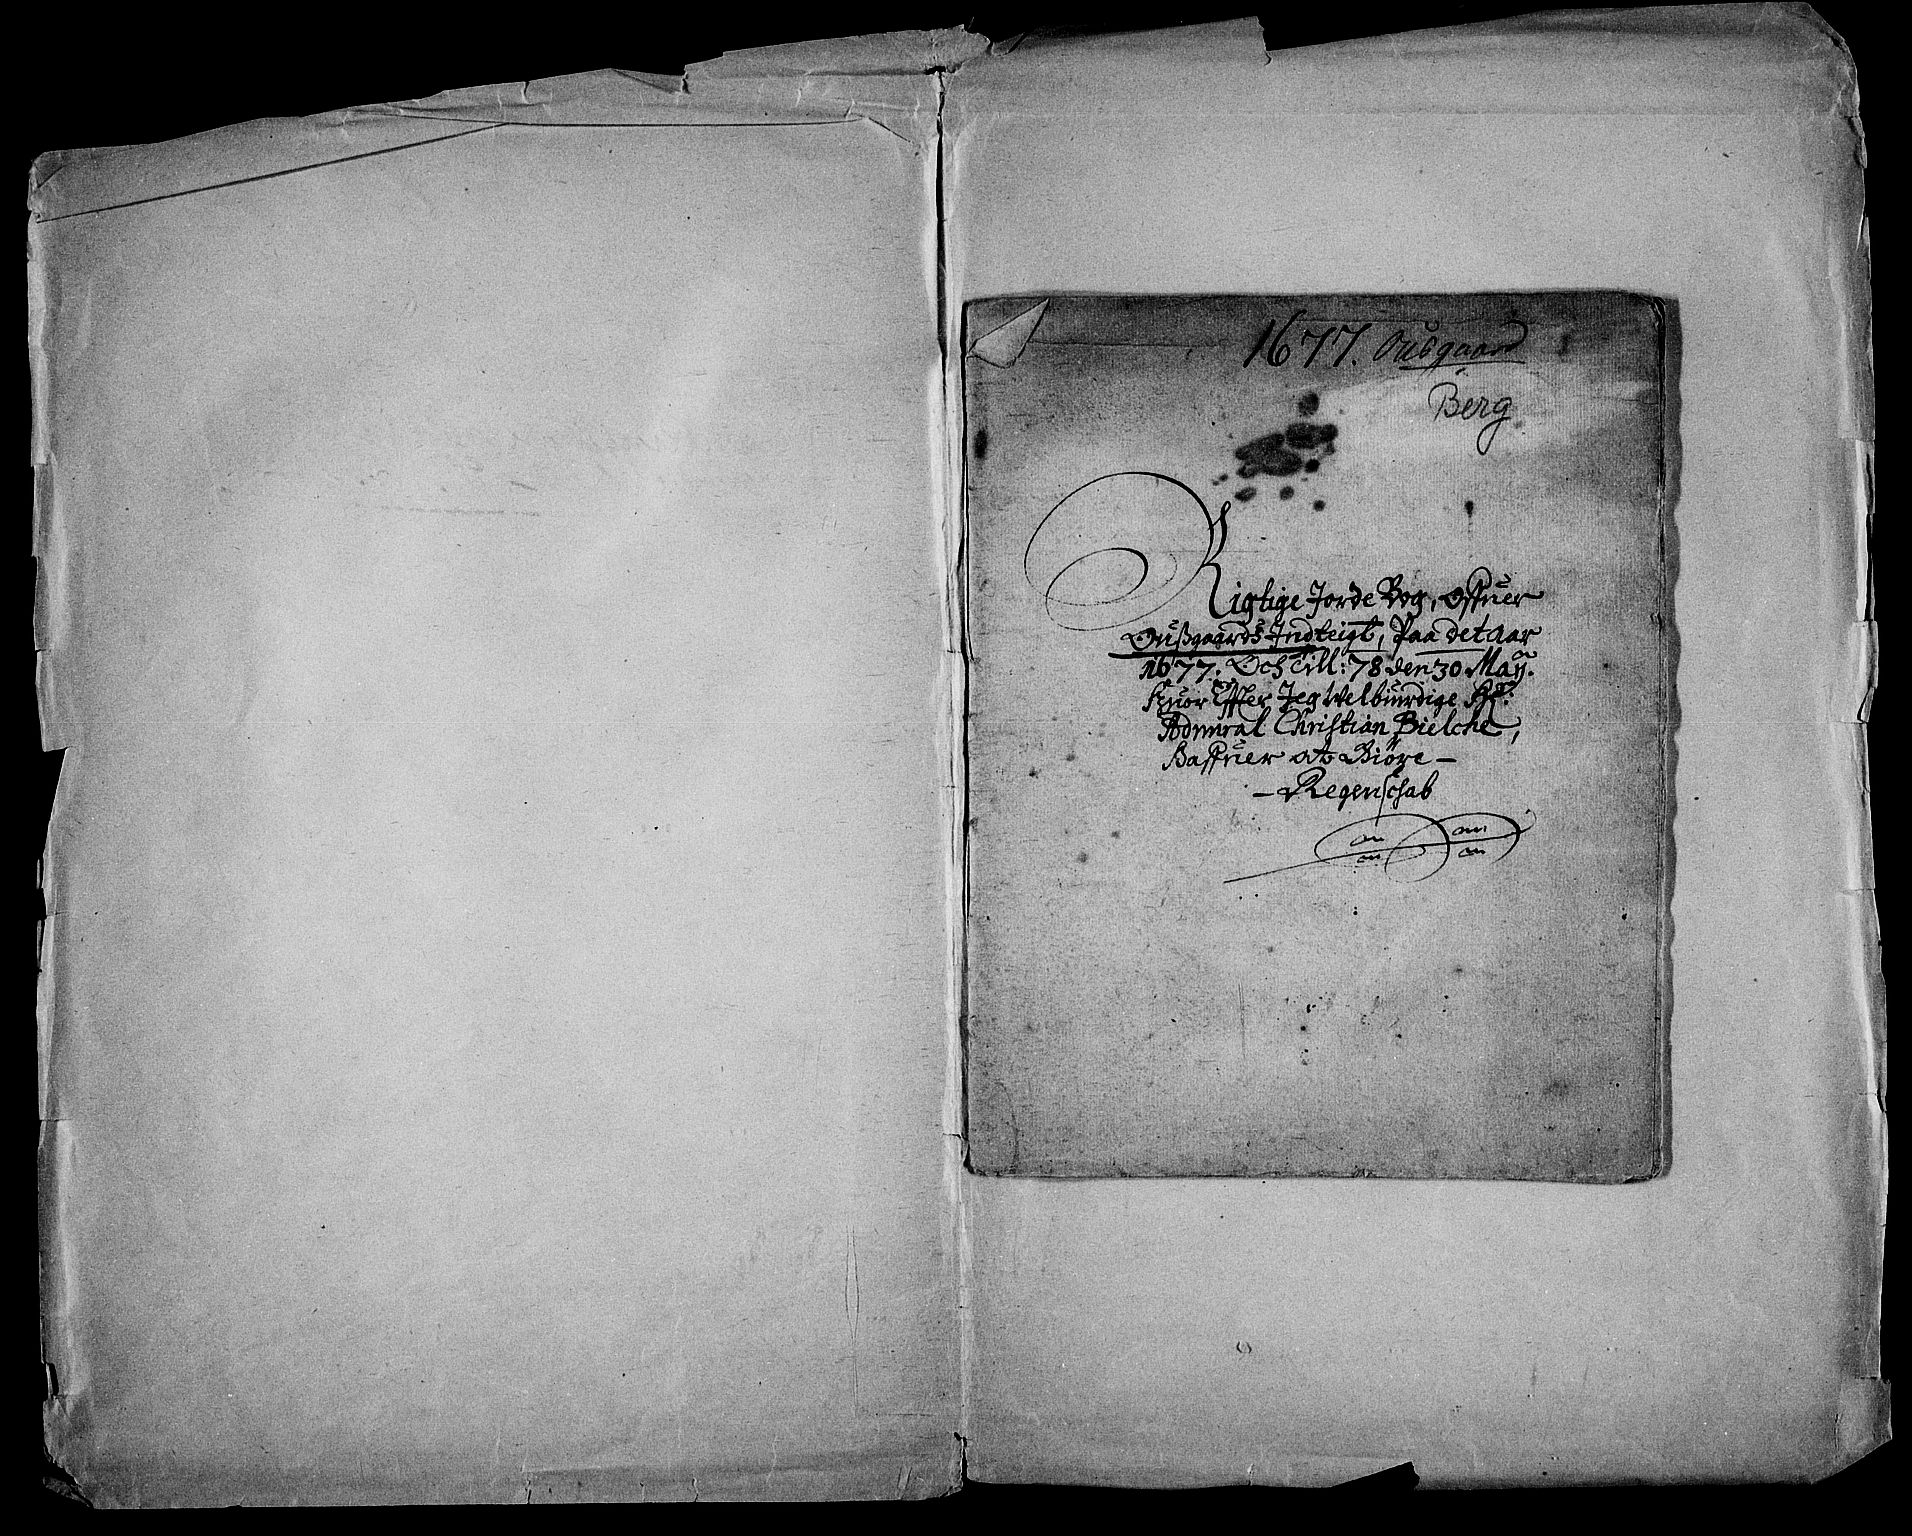 1677. Ousgaard
Berg
Rigtige Jorde Bog, Offuer
Oußgaards Indteigt, Paa det Aar
1677. Och till: 78 den 30 Maÿ.
Huor Effter Jeg Welbiurdige Hr:
Admiral Christian Bielche,
Haffuer at Giöre
Regenschab